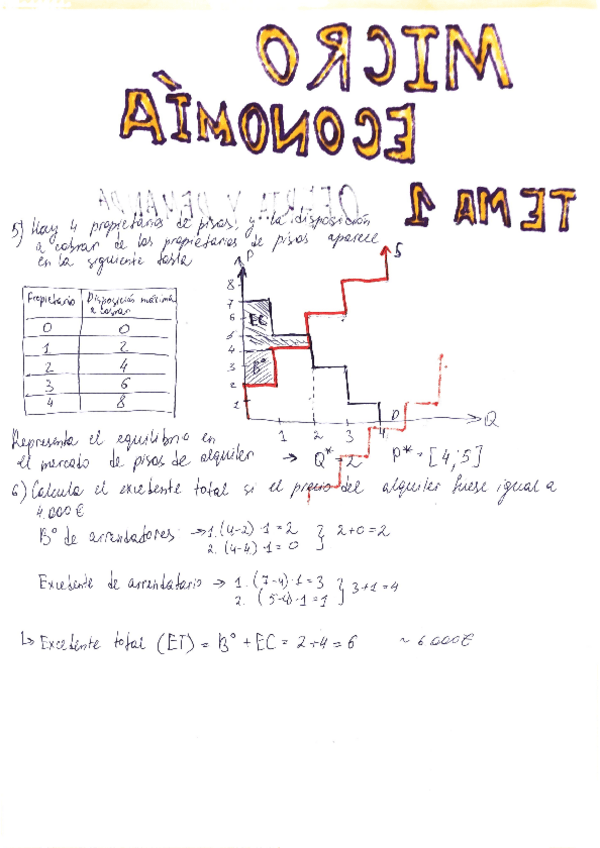 MICRO
ECONOMÍA
TEMA 1
OFERTA Y DEMANDA
5) Hay 4 propietarios de pisos, y la disposición
a cobrar de los propietarios de pisos aparece
en la siguiente tabla
Propietario Disposición máxima
a cobrar
0 0
1 2
2 4
3 6
4 8
P
S
8
7
6
5
4
3
2
1
EC
Bº
D
1 2 3 4
Q
Representa el equilibrio en
el mercado de pisos de alquiler → Q* = 2 P* = [4;5]
6) Calcula el excedente total si el precio del alquiler fuese igual a
4.000€
Bº de arrendadores → 1. (4-2)·1 = 2 } 2+0=2
2. (4-4)·1 = 0
Excedente de arrendatario → 1. (7-4)·1 = 3 } 3+1=4
2. (5-4)·1 = 1
↳ Excedente total (ET) = Bº + EC = 2+4 = 6 ~ 6.000€